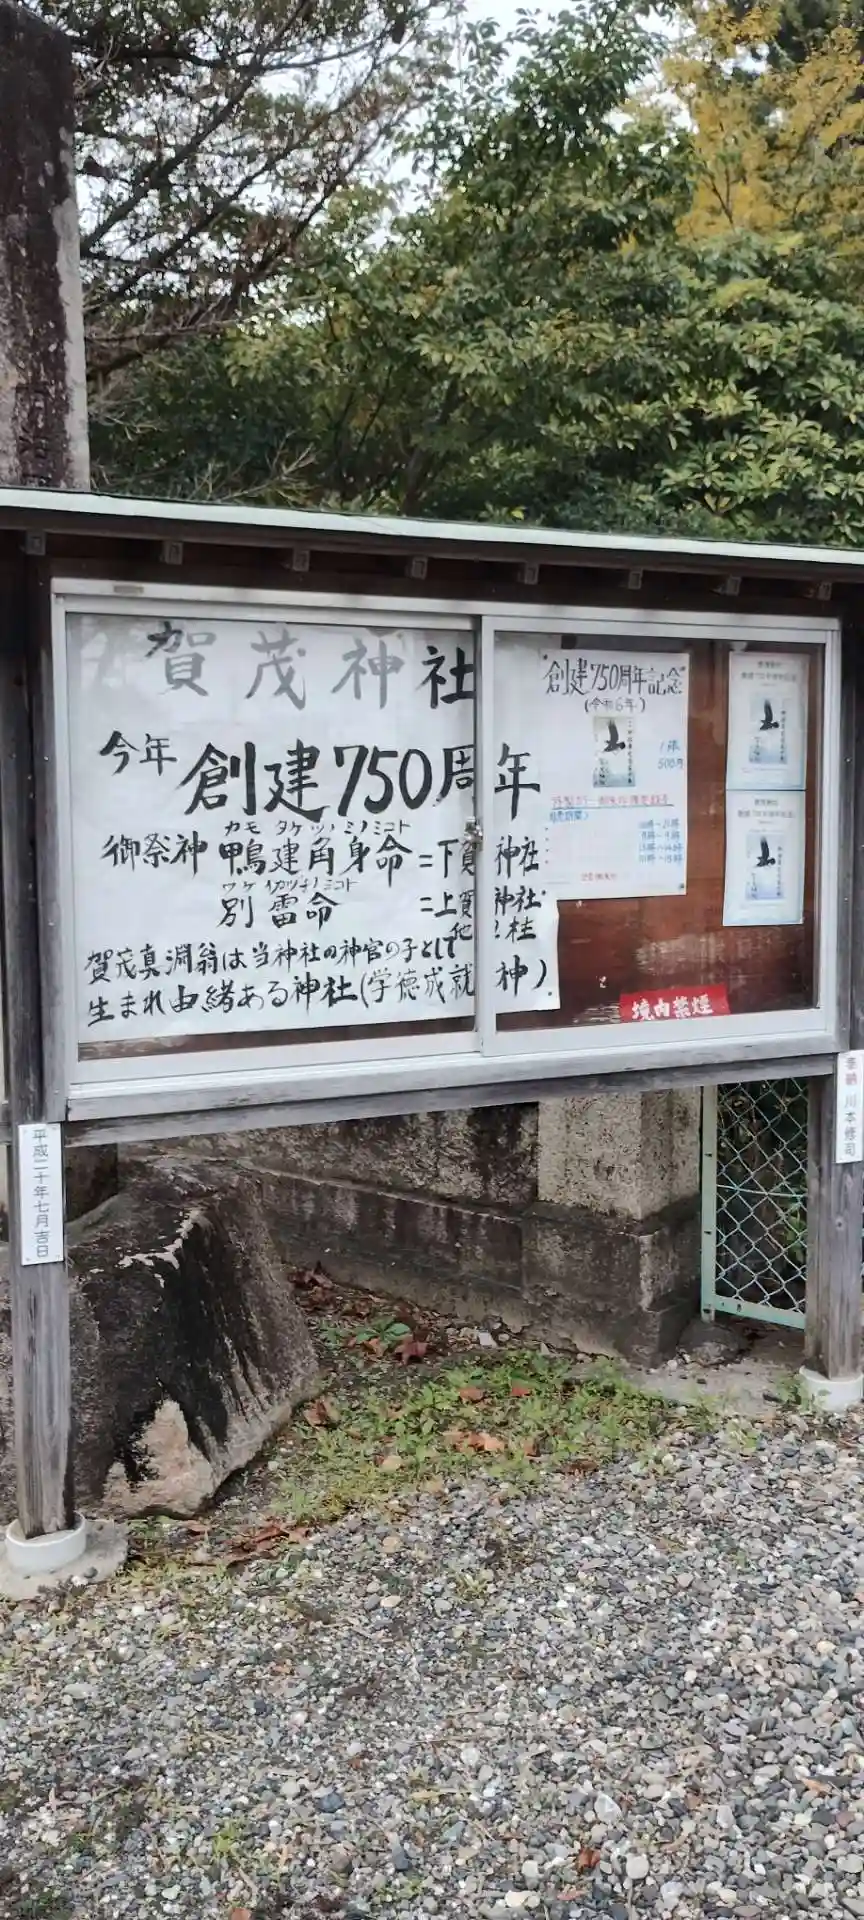 賀茂神社
今年 創建750周年
カモ タケツノミノミコト
御祭神 鴨建角身命=下賀神社
ワケイカツチノミコト
別雷命 =上賀神社
他2柱
賀茂真淵翁は当神社の神官の子として
生まれ由緒ある神社(学徳成就 神)
創建750周年記念
(令和6年)
1体
500円
境内禁煙
平成二十年七月吉日
奉納 川本修司